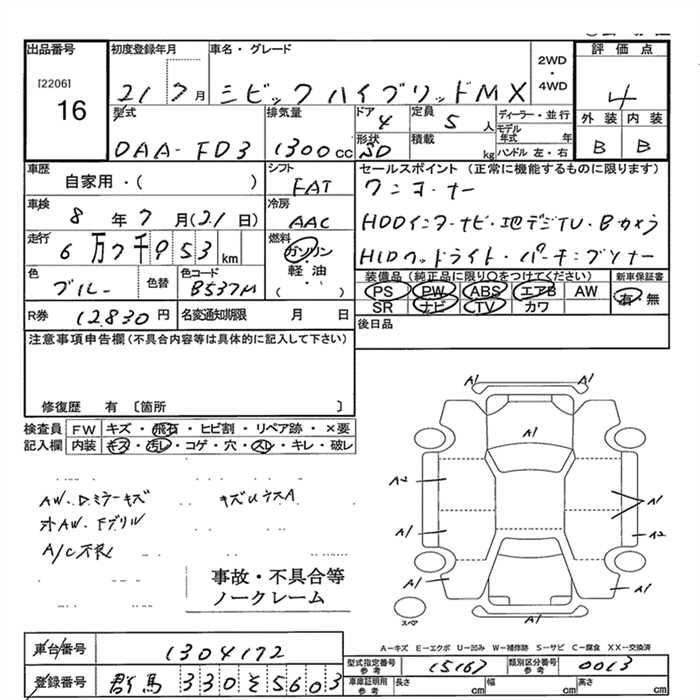 出品番号 初度登録年月 車名・グレード 2WD・4WD 評価点
[2206] 16 21 7月 シビックハイブリッドMX 4
型式 排気量 ドア 4 定員 5人 ディーラー・並行 外装 内装
DAA-FD3 1300cc 形状 SD 積載 kg モデル年式 年 ハンドル 左・右 B B
車歴 シフト セールスポイント (正常に機能するものに限ります)
自家用・( ) FAT ワンオーナー
車検 8年7月(21日) 冷房 AAC HDDインターナビ・地デジTV・Bカメラ
走行 6万7千953km 燃料 ガソリン HIDヘッドライト・パーキングソナー
色 ブルー 色替 色コード B537M 軽油 ( )
装備品 (純正品に限り○をつけてください) 新車保証書
PS PW ABS エアB AW 有・無
SR ナビ TV カワ
R券 12830円 名変通知期限 月 日 後日品
注意事項申告欄 (不具合内容等は具体的に記入して下さい)
修復歴 有 〔箇所 〕
検査員 FW キズ・飛石・ヒビ割・リペア跡・×要
記入欄 内装 キズ・汚レ・コゲ・穴・スレ・キレ・破レ
AW・Dミラーキズ キズUウスA
オAW・Fグリル
A/C不良
事故・不具合等
ノークレーム
A1 A1
A1
A2 A1
A1 A2
A1 A1
A1
スペア
A-キズ E-エクボ U-凹み W-補修跡 S-サビ C-腐食 XX-交換済
車台番号 1304172 型式指定番号 参考 15167 類別区分番号 参考 0013
登録番号 群馬 330 そ 5603 車庫証明用 参考 長さ cm 幅 cm 高さ cm